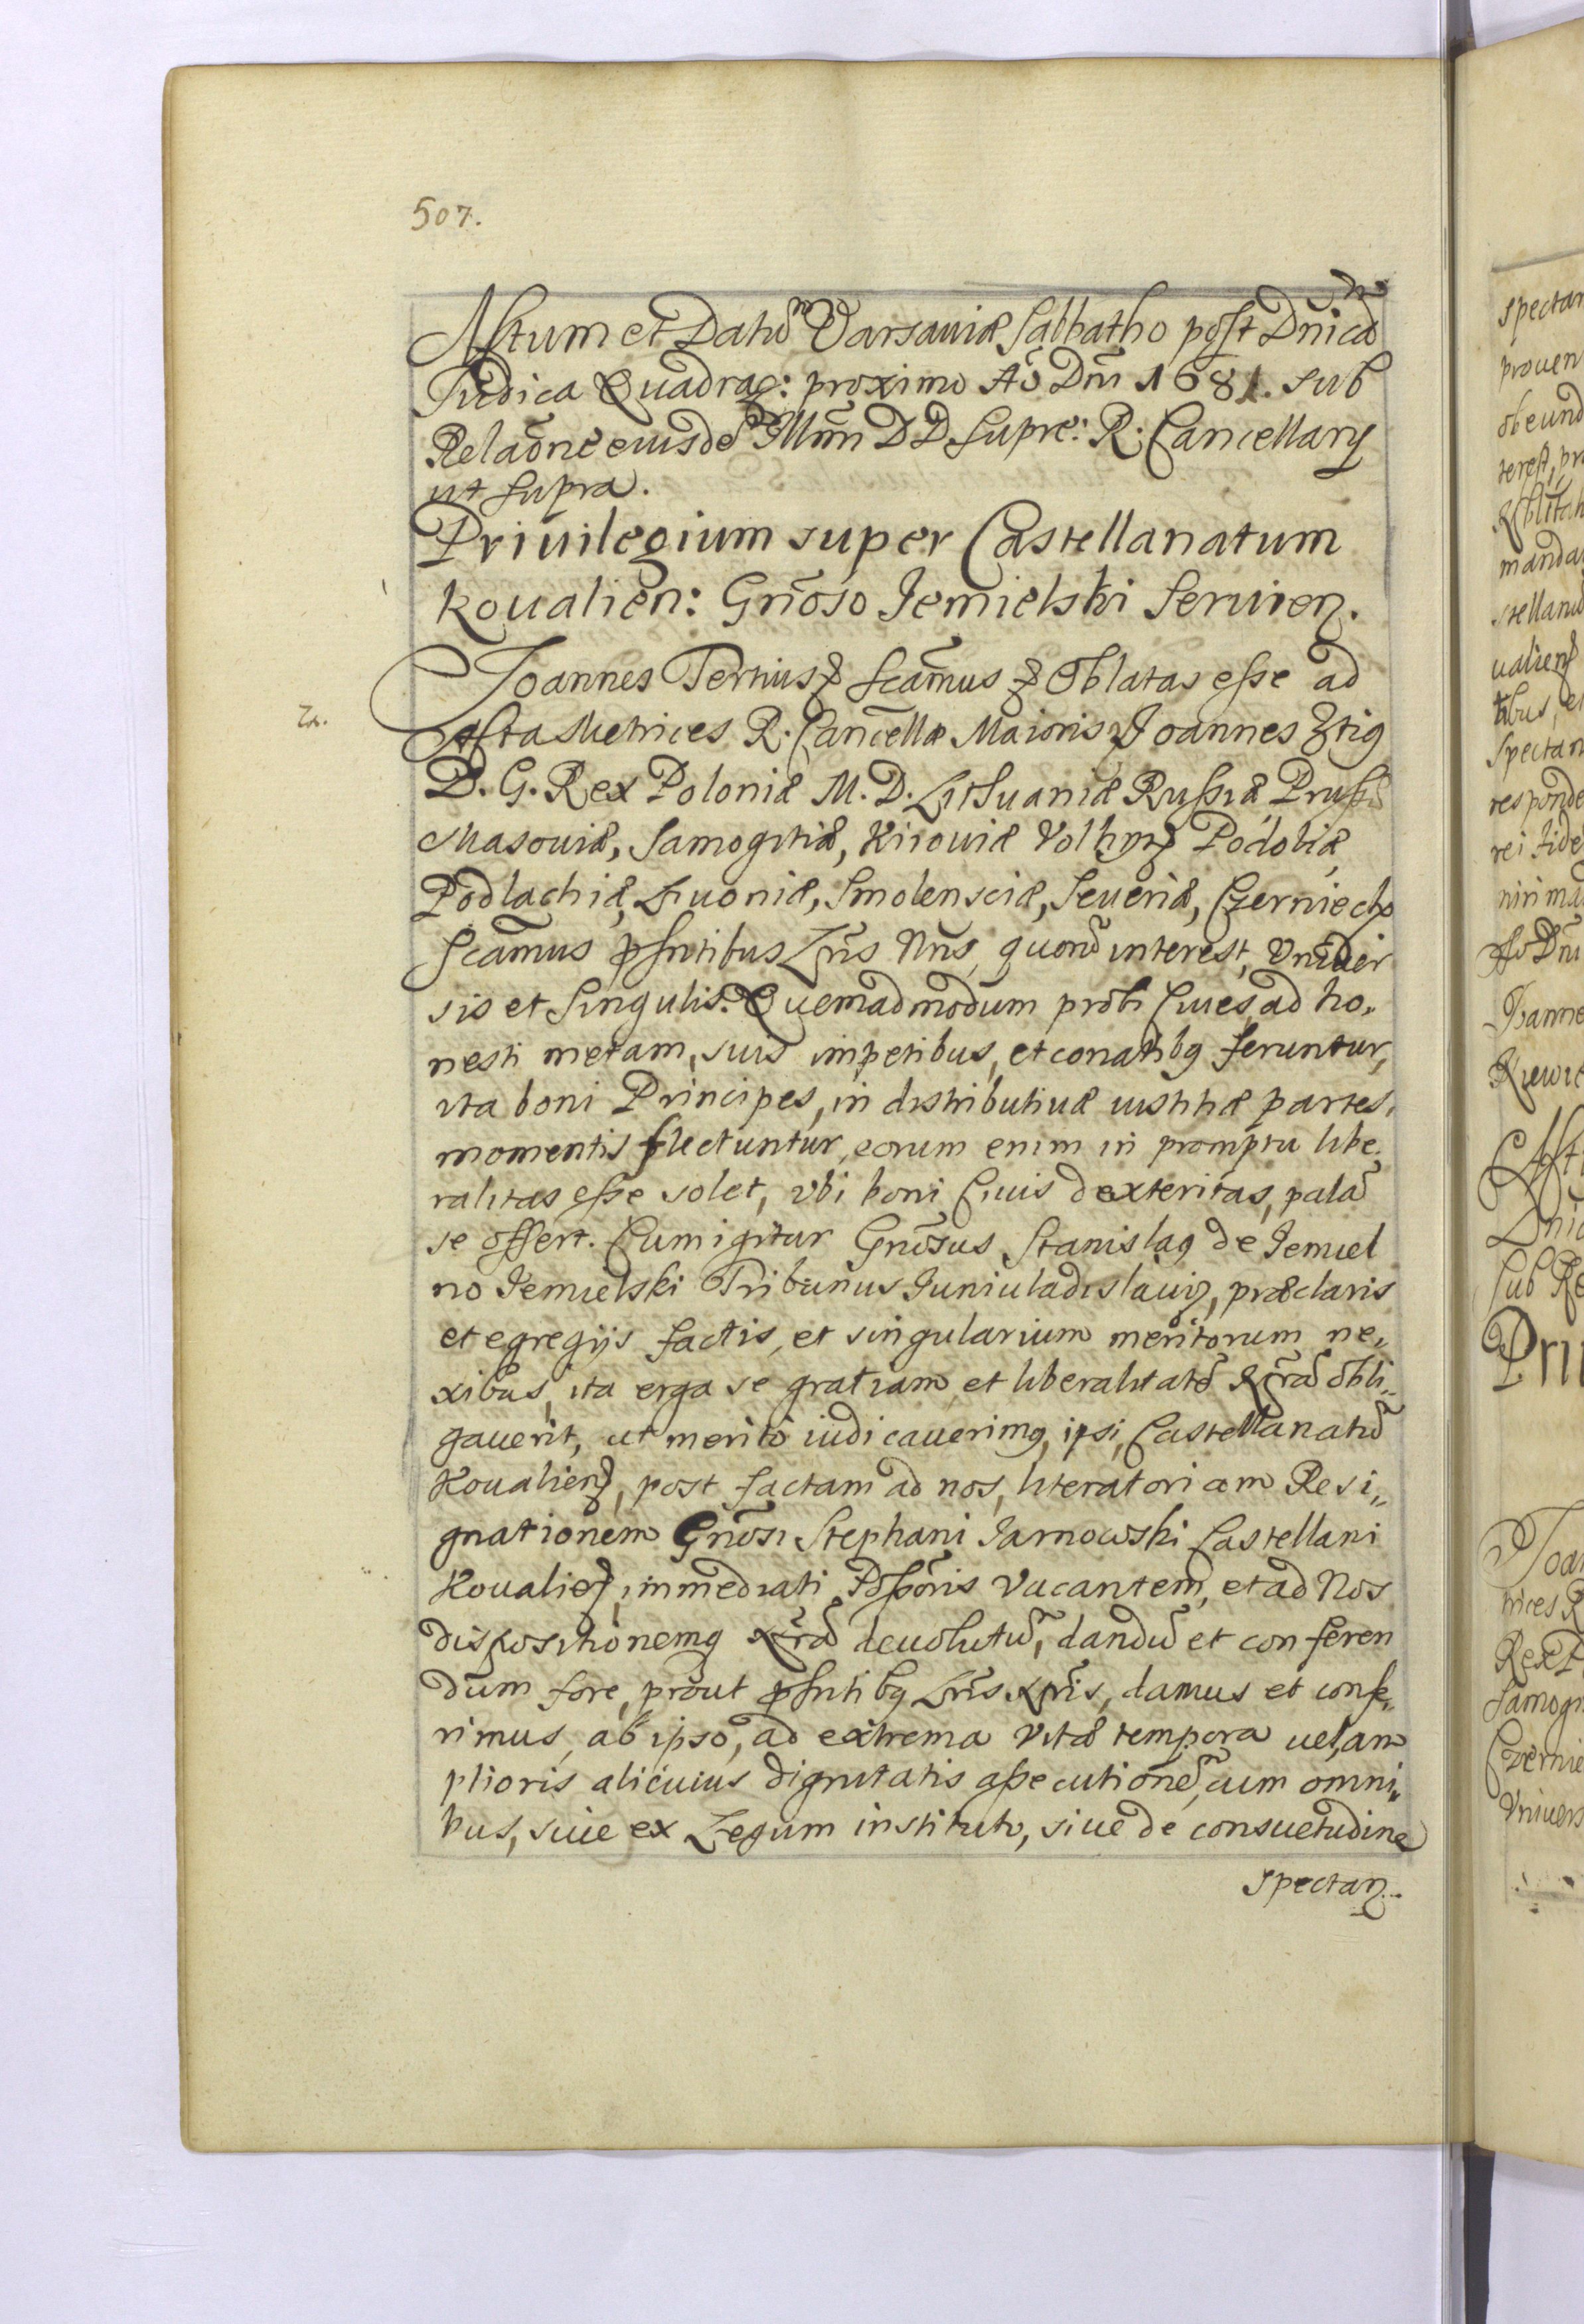 507.
Actum et Datũ Varsaviæ Sabbatho post Dñicã
Judica Quadrag: proximo Aō Dñi 1681. sub
Relaõne eiusdẽ Illmi DD Supre: R: Cancellarij
ut supra.
Privilegium super Castellanatum
Kovalien: Gñoso Jemielski servien.
Joannes Tertius & Scãmus & Oblatas esse ad
2.
Acta Metrices R. Cancellæ Maioris Joannes 3tig
D. G. Rex Poloniæ M. D. Lithuaniæ Russiæ Prussiæ
Masoviæ, Samogitiæ, Kijoviæ Volhyniæ Podoliæ
Podlachiæ, Livoniæ, Smolensciæ, Severiæ, Czerniechoviæ
Scãmus pñtibus Lris Nris, quorũ interest, Vniver
sis et Singulis. Quemadmodum probi Cives, ad ho,
nesti metam, suis impetibus, et conatibq feruntur,
ita boni Principes, in distributivæ iustitiæ partes,
momentis flectuntur, eorum enim in promptu libe,
ralitas esse solet, vbi boni Civis dexteritas, palã
se offert. Cum igitur Gñosus Stanislaq de Jemiel
no Jemielski Tribunus Juniuladislavien, præclaris
et egregijs factis, et singularium meritorum ne,
xibus, ita erga se gratiam et liberalitatẽ Nrãm obli,,
gaverit, ut merito iudicaverimq, ipsi, Castellanatũ
Kovalien, post factam ad nos, literatoriam Resi,,
gnationem Gñosi Stephani Jarnowski Castellani
Kovalien, immediati Possoris vacantem, et ad Nos
dispositionemq Nrãm devolutũ, dandũ et conferen
dum fore, prout pñtibq Lris Nris, damus et confe,
rimus, ab ipso, ad extrema vitæ tempora vel, am
plioris alicuius dignitatis assecutionẽ, cum omni,,
bus, sive ex Legum instituto, sive de consuetudine
spectan..